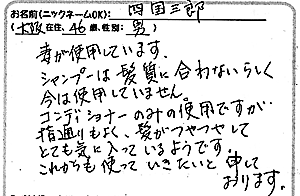 お名前(ニックネームOK): 四国三郎
(大阪 在住、46 歳、性別: 男)
妻が使用しています。
シャンプーは髪質に合わないらしく
今は使用していません。
コンディショナーのみの使用ですが…
指通りもよく、髪がつやつやして
とても気に入っているようです。
これからも使っていきたいと申して
おります。